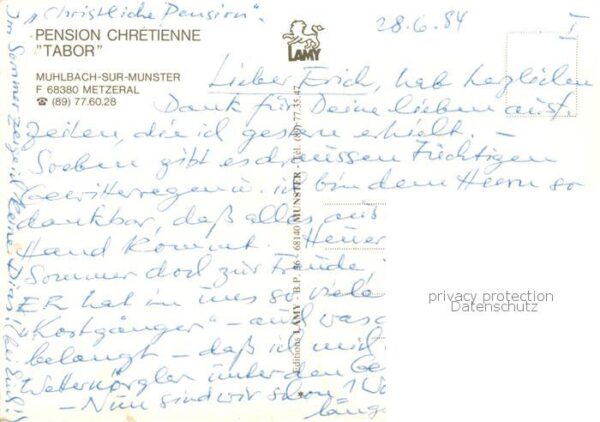 "Christliche Pension".
PENSION CHRÉTIENNE
"TABOR"
MUHLBACH-SUR-MUNSTER
F 68380 METZERAL
☎ (89) 77.60.28
LAMY
28.6.84
I
Lieber Erich, hab herzlichen
Dank für Deine lieben ausf.
Zeilen, die ich gestern erhielt. -
Soeben gibt es draussen tüchtigen
Gewitterregen u. ich bin dem Herrn so
dankbar, daß alles aus
Hand kommt. Heuer
Sommer doch zur Freude,
ER hat im uns so viele
"Kostgänger" - und was
belangt - daß ich mich
Wetternörgler unter den
- Nun sind wir schon 1
länge
Im Sommer
Editions LAMY - B.P. 36 - 68140 MUNSTER - Tél. (89) 77.35.47
privacy protection
Datenschutz